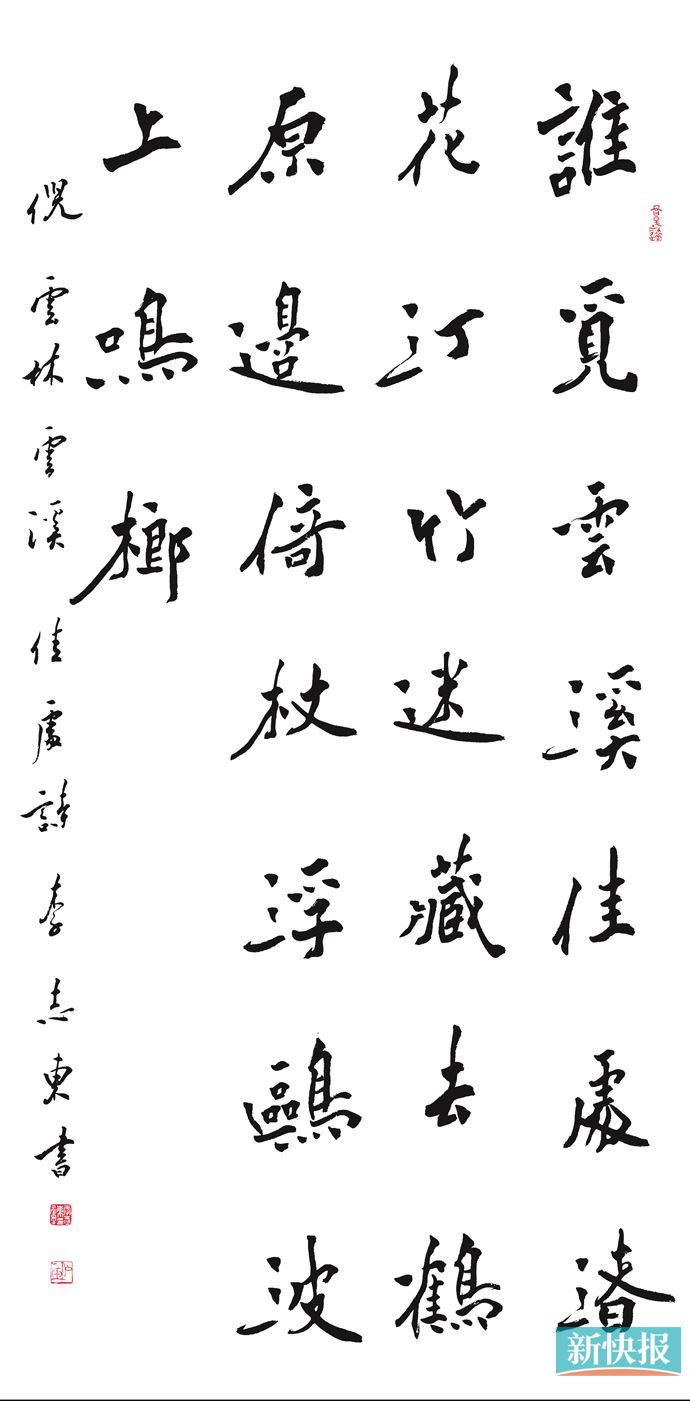 誰覓雲溪佳處渚
花汀竹迷藏去鶴
原邊倚杖浮鷗波
上鳴榔
倪雲林雲溪佳處詩李志東書
新快报